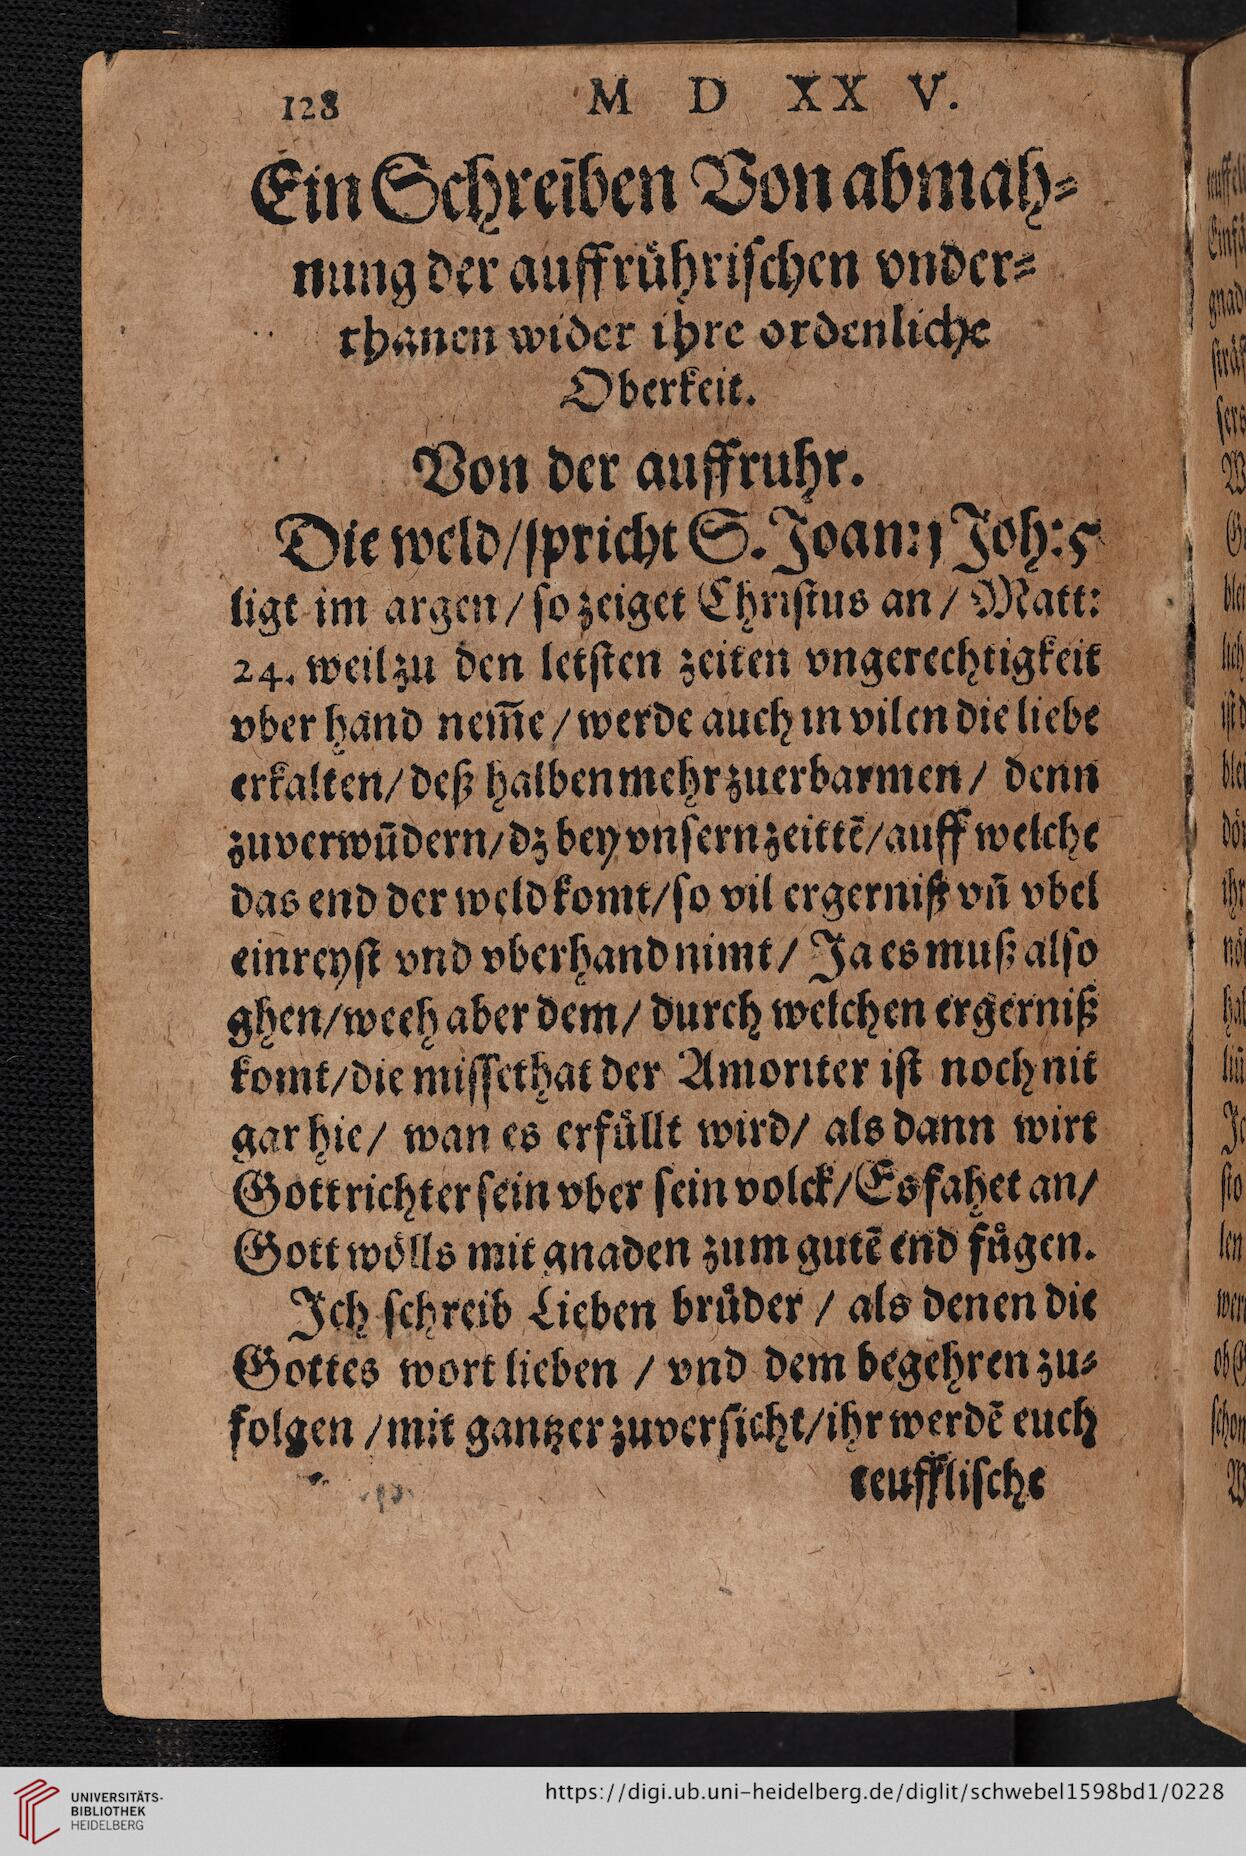 128 M D XX V.
Ein Schreiben Von abmah⸗
nung der auffrührischen vnder⸗
thanen wider ihre ordenliche
Oberkeit.
Von der auffruhr.
Die weld/spricht S. Joan: 1 Joh: 5
ligt im argen/ so zeiget Christus an / Matt:
24. weil zu den letsten zeiten vngerechtigkeit
vber hand nem̃e/werde auch in vilen die liebe
erkalten/deß halben mehr zuerbarmen/ denn
zuverwũdern/dz bey vnsern zeittẽ/auff welche
das end der weld komt/so vil ergerniß vñ vbel
einreyst vnd vberhand nimt/ Ja es muß also
ghen/weeh aber dem/ durch welchen ergerniß
komt/die missethat der Amoriter ist noch nit
gar hie/ wan es erfüllt wird/ als dann wirt
Gott richter sein vber sein volck/Es fahet an/
Gott wölls mit gnaden zum gutẽ end fůgen.
Jch schreib Lieben brůder / als denen die
Gottes wort lieben / vnd dem begehren zu⸗
folgen /mit gantzer zuversicht/ihr werdẽ euch
teufflische
UNIVERSITÄTS-
BIBLIOTHEK
HEIDELBERG
https://digi.ub.uni-heidelberg.de/diglit/schwebel1598bd1/0228